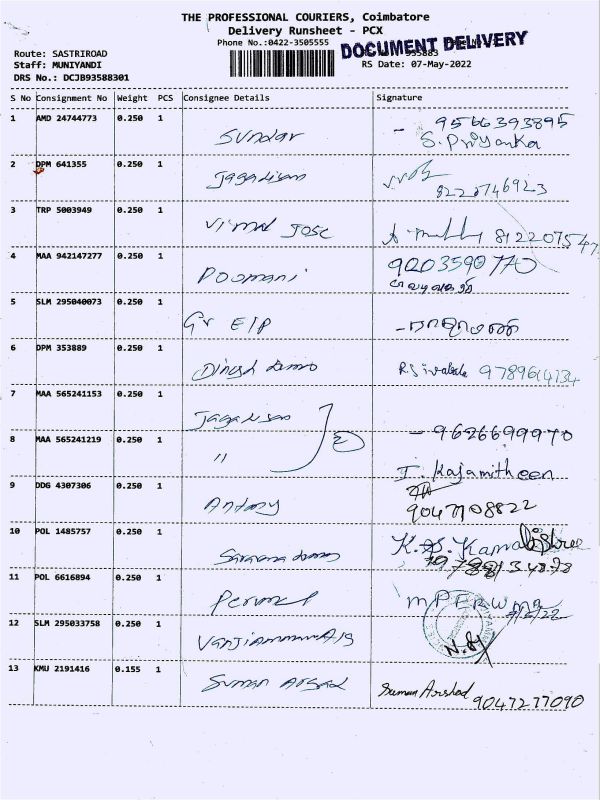 THE PROFESSIONAL COURIERS, Coimbatore
Delivery Runsheet - PCX
Phone No.:0422-3505555
DOCUMENT DELIVERY
Route: SASTRIROAD
Staff: MUNIYANDI
RS Date: 07-May-2022
DRS No.: DCJB93588301
S No Consignment No Weight PCS Consignee Details Signature
1 AMD 24744773 0.250 1 Sundar - 9566393895
S. Priyanka
2 DPM 641355 0.250 1 Jagadisan 8220746923
3 TRP 5003949 0.250 1 Vimal Jose 812207547
4 MAA 942147277 0.250 1 Poomani 9003590770
5 SLM 295040073 0.250 1 Gv E/P
6 DPM 353889 0.250 1 Dinesh 9789614134
7 MAA 565241153 0.250 1 Jagadisan
8 MAA 565241219 0.250 1 " 2 - 9626699970
I. Kajamitheen
9 DDG 4307306 0.250 1 Antony 9047708822
10 POL 1485757 0.250 1 Saravana K.S. Kamalishree
11 POL 6616894 0.250 1 Perumal
12 SLM 295033758 0.250 1
13 KMU 2191416 0.155 1 Suman Arsad Suman Arshad
9047277090